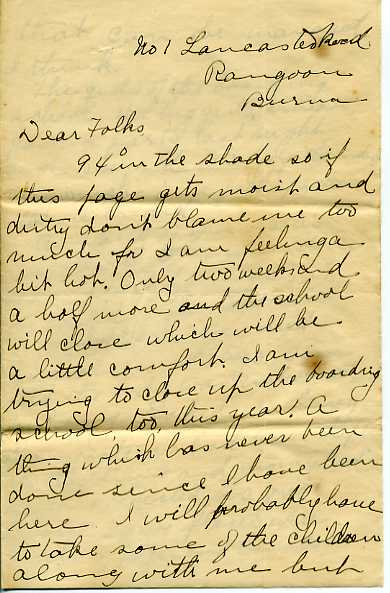 No 1 Lancaster Road
Rangoon
Burma
Dear Folks,
94° in the shade so if
this page gets moist and
dirty don't blame me too
much for I am feeling a
bit hot. Only two weeks and
a half more and the school
will close which will be
a little comfort. I am
trying to close up the boarding
school, too, this year. A
thing which has never been
done since I have been
here. I will probably have
to take some of the children
along with me but